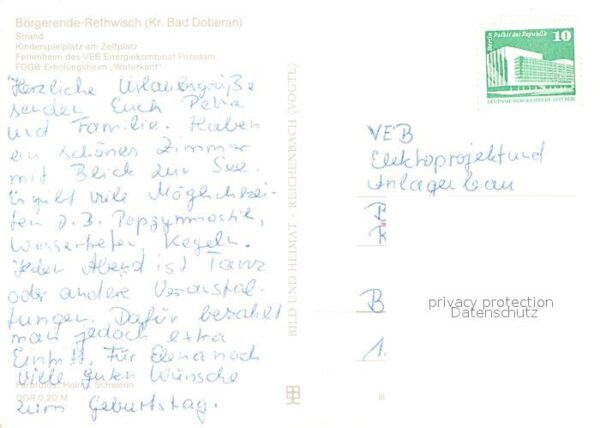 Börgerende-Rethwisch (Kr. Bad Doberan)
Strand
Kinderspielplatz am Zeltplatz
Ferienheim des VEB Energiekombinat Potsdam,
FDGB-Erholungsheim „Waterkant"
Herzliche Urlaubsgrüße
senden Euch Petra
und Familie. Haben
ein schönes Zimmer
mit Blick zur See.
Es gibt viele Möglichkei-
ten z. B. Popgymnastik,
Wassertreten, Kegeln.
Jeden Abend ist Tanz
oder andere Veranstal-
tungen. Dafür bezahlt
man jedoch extra
Eintritt. Für Elena noch
viele guten Wünsche
zum Geburtstag.
Farbfotos: Schwerin
DDR 0,20 M
BILD UND HEIMAT - REICHENBACH (VOGTL)
Berlin Palast der Republik
10
DEUTSCHE DEMOKRATISCHE REPUBLIK
VEB
Elektroprojekt und
Anlagenbau
B
1.
privacy protection
Datenschutz